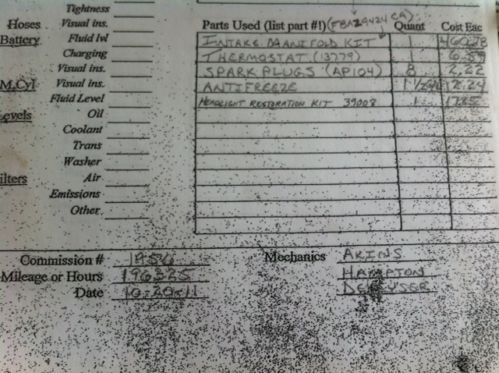 Tightness
Hoses Visual ins.
Battery Fluid lvl
Charging
Visual ins.
M.Cyl Visual ins.
Fluid Level
evels Oil
Coolant
Trans
Washer
ilters Air
Emissions
Other
Parts Used (list part #!) Quant Cost Eac
INTAKE MANIFOLD KIT 1
THERMOSTAT (13779) 1
SPARK PLUGS (AP104) 8 2.22
ANTIFREEZE
HEADLIGHT RESTORATION KIT 39008 1
Commission # 1456
Mileage or Hours 196325
Date 10-20-11
Mechanics AKINS
HAMPTON